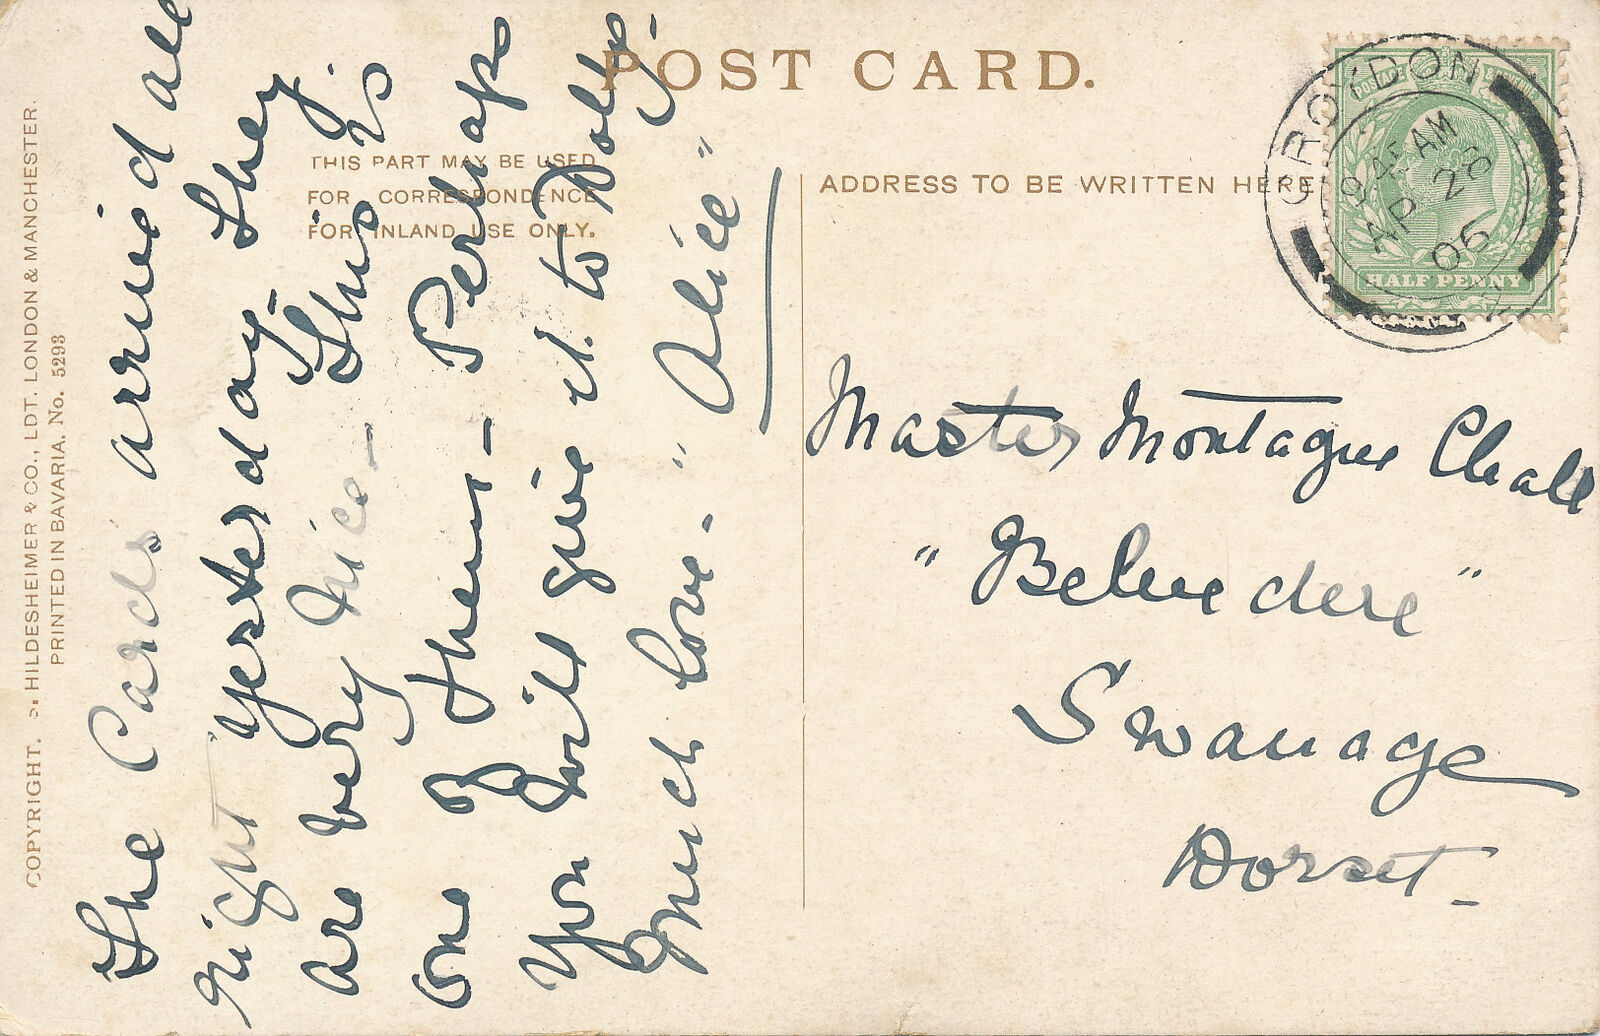 POST CARD.
THIS PART MAY BE USED
FOR CORRESPONDENCE
FOR INLAND USE ONLY.
ADDRESS TO BE WRITTEN HERE
COPYRIGHT. S. HILDESHEIMER & CO., LDT. LONDON & MANCHESTER.
PRINTED IN BAVARIA. No. 5293
The Cards arrived all
right yesterday - they
are very nice - This is
one of them - Perhaps
you will give it to Dolly -
Much love - "Alice"
CROYDON
9 45 AM
AP 26
06
HALF PENNY
Master Montague Cheall
"Belvedere"
Swanage
Dorset -